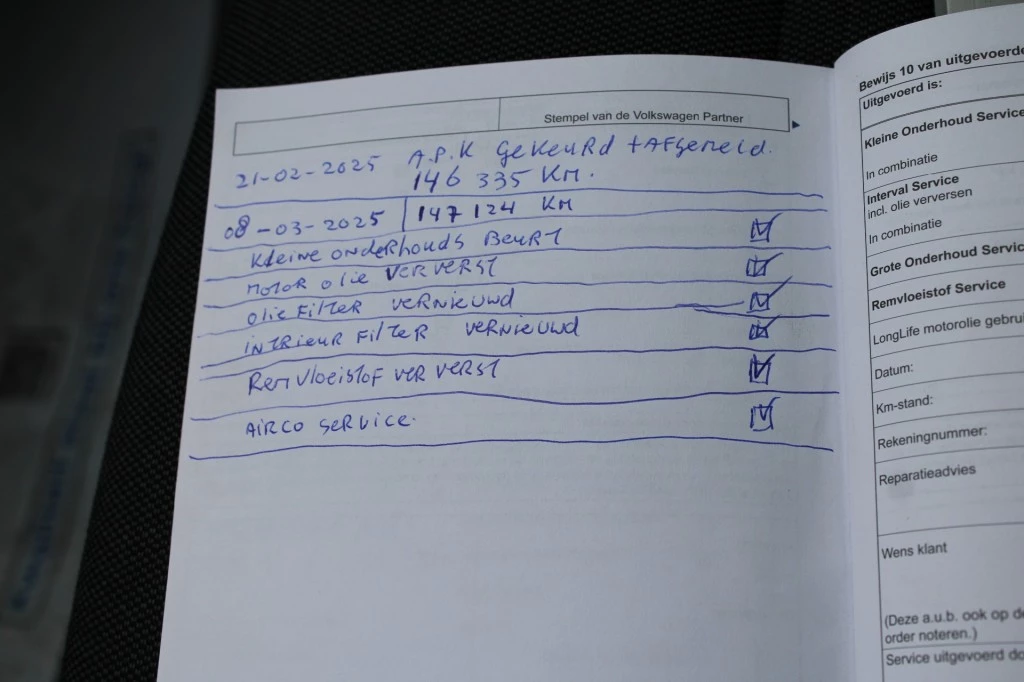 Stempel van de Volkswagen Partner
21-02-2025 A.P.K GEKEURD + AFGEMELD.
146 335 KM.
08-03-2025 147 124 KM
KLEINE ONDERHOUDS BEURT
MOTOR OLIE VERVERST
OLIE FILTER VERNIEUWD
INTRIEUR FILTER VERNIEUWD
REMVLOEISTOF VERVERST
AIRCO SERVICE.
Bewijs 10 van uitgevoerde
Uitgevoerd is:
Kleine Onderhoud Service
In combinatie
Interval Service
incl. olie verversen
In combinatie
Grote Onderhoud Servic
Remvloeistof Service
LongLife motorolie gebrui
Datum:
Km-stand:
Rekeningnummer:
Reparatieadvies
Wens klant
(Deze a.u.b. ook op de
order noteren.)
Service uitgevoerd do